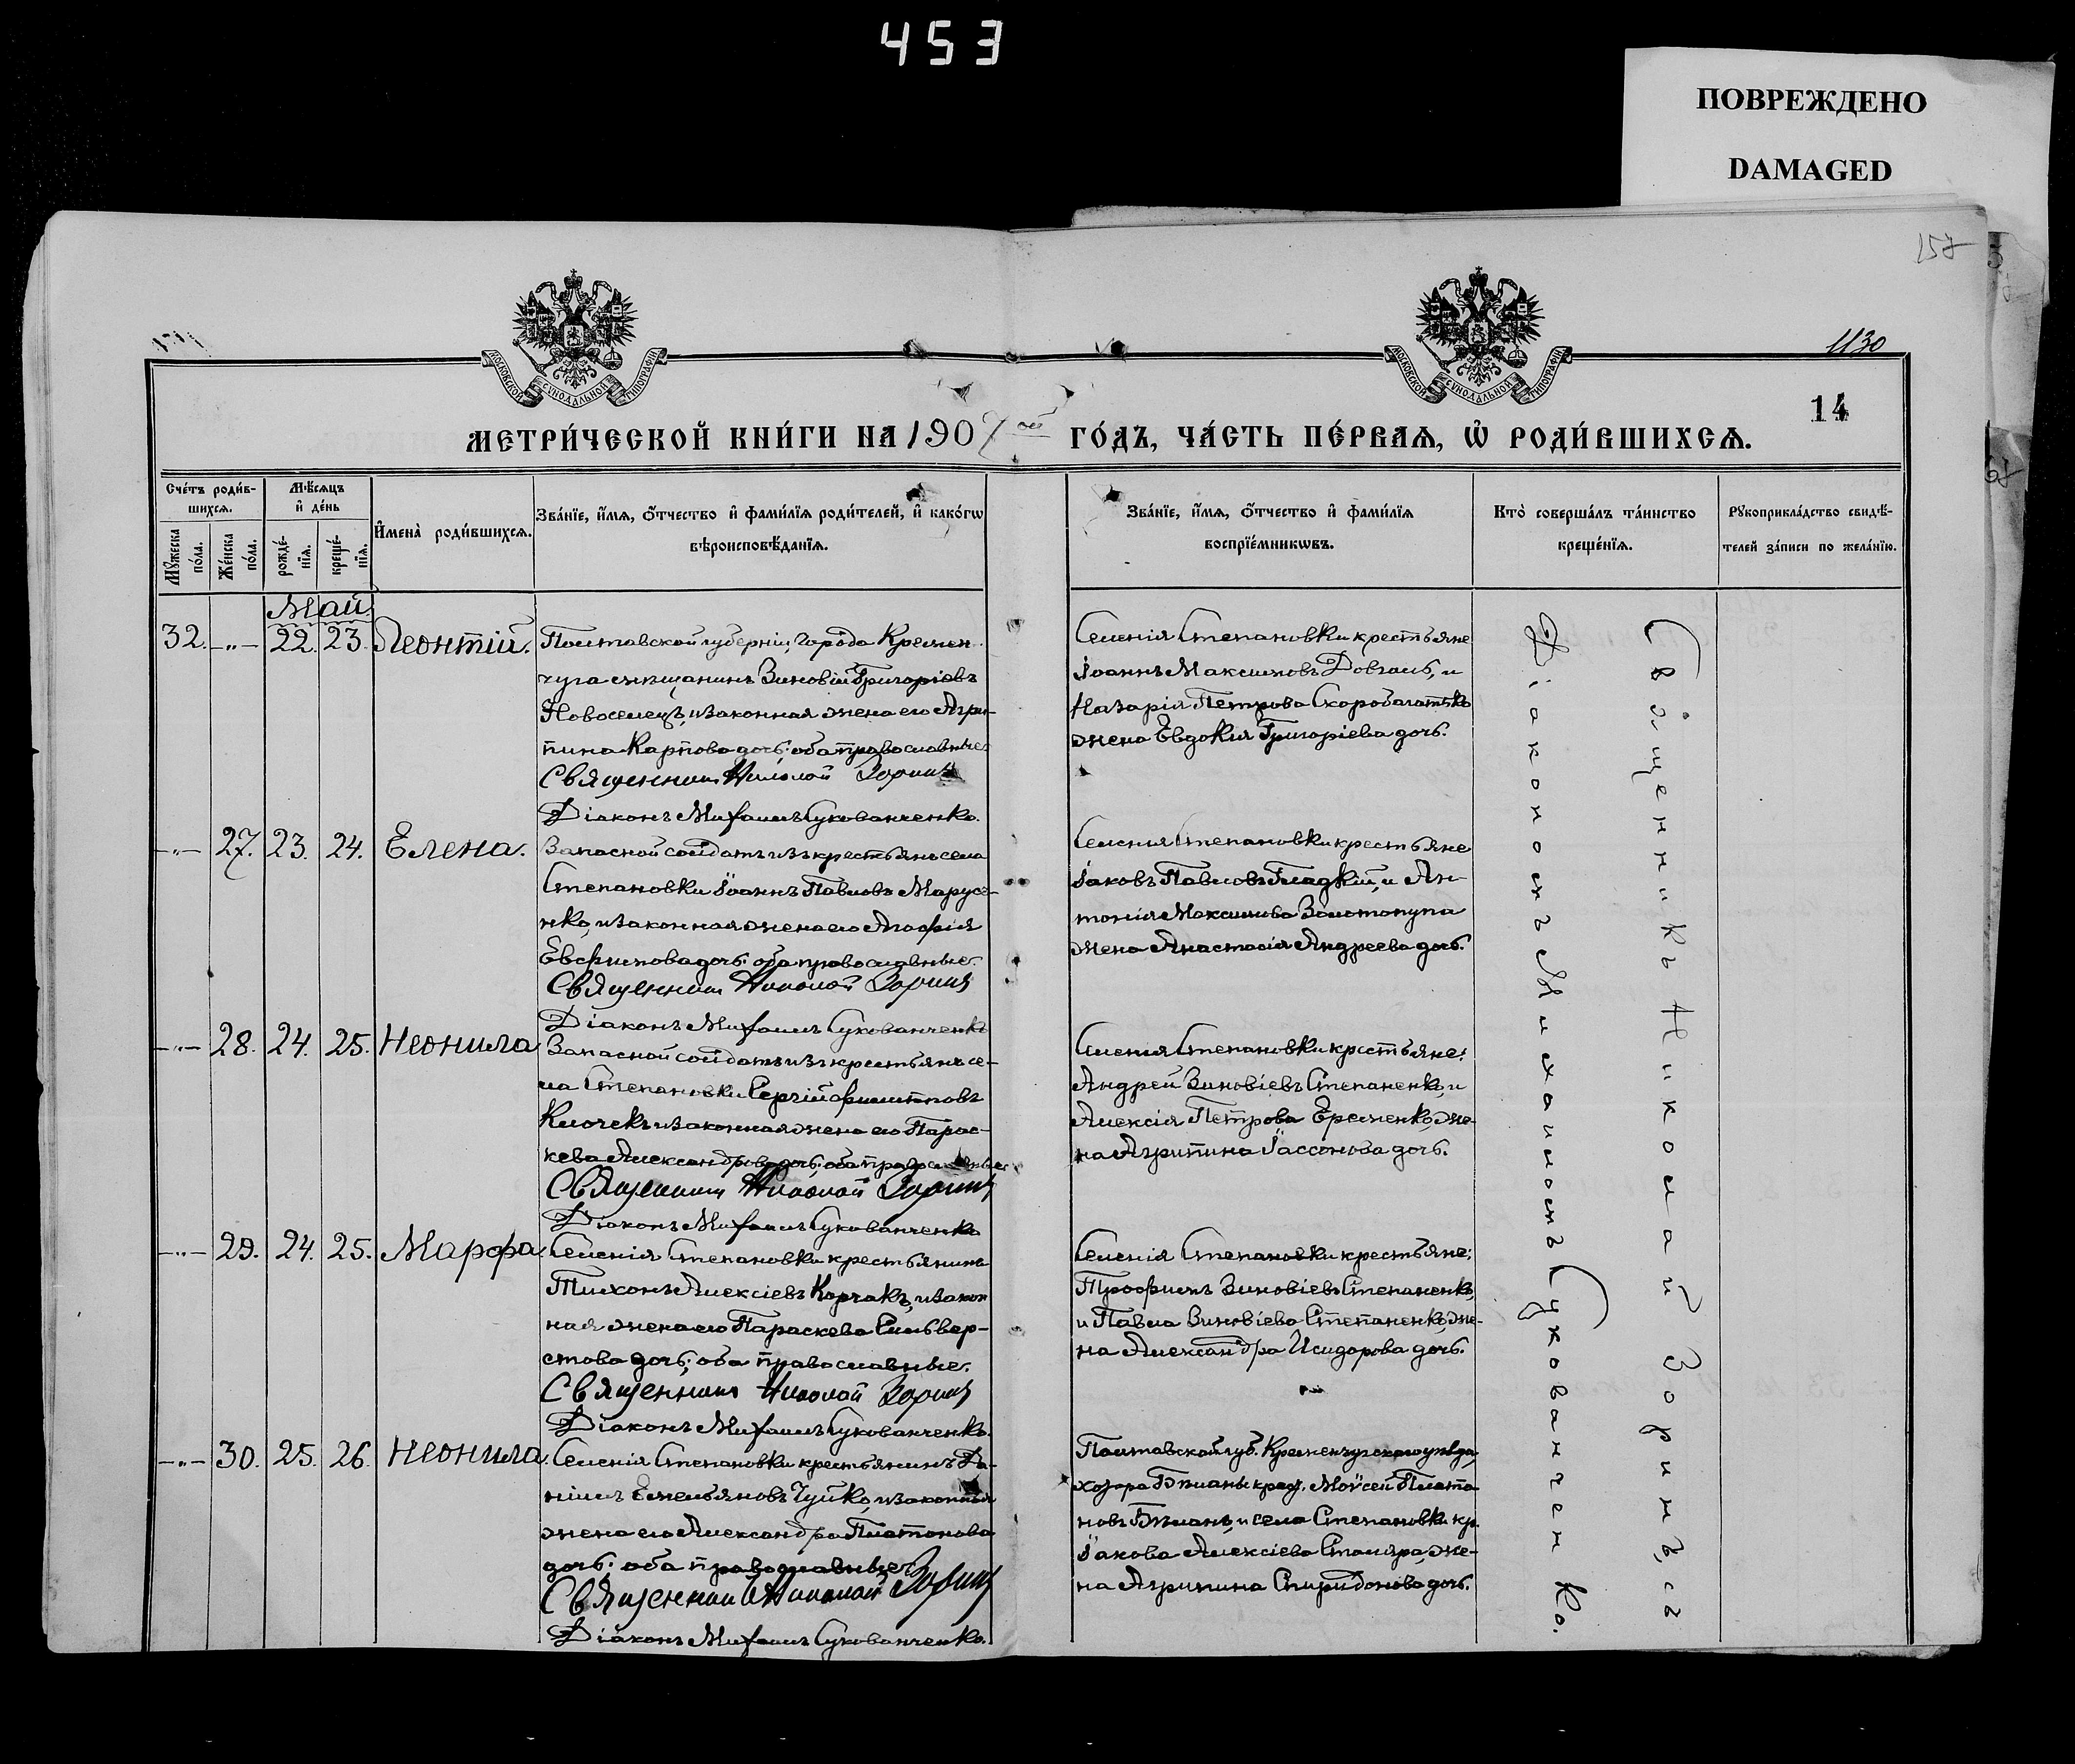 453
ПОВРЕЖДЕНО
DAMAGED
157
1130
МОСКОВСКОЙ СѴНОДАЛЬНОЙ ТИПОГРАФІИ
МОСКОВСКОЙ СѴНОДАЛЬНОЙ ТИПОГРАФІИ
14
МЕТРИ́ЧЕСКОЙ КНИ́ГИ НА 1907 ой ГО́ДЪ, ЧА́СТЬ ПЕ́РВАѦ, Ѡ҆ РОДИ́ВШИХСѦ.
Сче́тъ роди́в-
шихсѧ.
Мꙋжеска по́ла.
Же́нска по́ла.
Мѣ́сѧцъ
и҆ де́нь
рожде́-
нїѧ.
креще́-
нїѧ.
И҆мена̀ роди́вшихсѧ.
Зва́нїе, и҆́мѧ, ѻ҆́тчество и҆ фами́лїѧ роди́телей, и҆ како́гѡ
вѣроисповѣ́данїѧ.
Зва́нїе, и҆́мѧ, ѻ҆́тчество и҆ фами́лїѧ
воспрїе́мникѡвъ.
Кто̀ соверша́лъ та́инство
креще́нїѧ.
Рꙋкоприкла́дство свидѣ́-
телей за́писи по жела́нїю.
Май.
32. -„- 22. 23. Леонтій.
Полтавской губерніи, города Кремен-
чуга мѣщанинъ Зиновій Григоріевъ
Новоселецъ, и законная жена его Агри-
пина Карпова дочь; оба православные.
Священникъ Николай Зоринъ
Діаконъ Михаилъ Сукованченко.
Селенія Степановки крестьяне
Іоаннъ Максимовъ Довгаль, и
Назарія Петрова Скоробагатько
жена Евдокія Григоріева дочь.
-„- 27. 23. 24. Елена.
Запасной солдатъ изъ крестьянъ села
Степановки Іоаннъ Павловъ Марусе-
нко, и законная жена его Агафія
Евфимова дочь; оба православные.
Священникъ Николай Зоринъ
Діаконъ Михаилъ Сукованченко
Селенія Степановки крестьяне
Іаковъ Павловъ Гладкій, и Ан-
тонія Максимова Золотопупа
жена Анастасія Андреева дочь.
-„- 28. 24. 25. Неонила
Запасной солдатъ изъ крестьянъ се-
ла Степановки Сергій Филипповъ
Клочекъ и законная жена его Парас-
кева Александрова дочь; оба православные
Священникъ Николай Зоринъ
Діаконъ Михаилъ Сукованченко
Селенія Степановки крестьяне:
Андрей Зиновіевъ Степаненко, и
Алексія Петрова Еременко, же-
на Агрипина Іассонова дочь.
-„- 29. 24. 25. Марфа.
Селенія Степановки крестьянинъ
Тихонъ Алексіевъ Корчакъ, и закон
ная жена его Параскева Сильвер-
стова дочь; оба православные.
Священникъ Николай Зоринъ
Діаконъ Михаилъ Сукованченко.
Селенія Степановки крестьяне;
Трофимъ Зиновіевъ Степаненко,
и Павла Зиновіева Степаненко, же-
на Александра Исидорова дочь.
-„- 30. 25. 26. Неонила.
Селенія Степановки крестьянинъ Да-
ніилъ Емельяновъ Чуйко, и законная
жена его Александра Платонова
дочь; оба православные.
Священникъ Николай Зоринъ
Діаконъ Михаилъ Сукованченко.
Полтавской губ. Кременчугскаго уѣзда,
Моѵсей Плато-
новъ Бѣланъ, и села Степановки кр.
Іакова Алексіева Столяра, же-
на Агрипина Спиридонова дочь.
Священникъ Николай Зоринъ, съ
Діакономъ Михаиломъ Сукованченко.